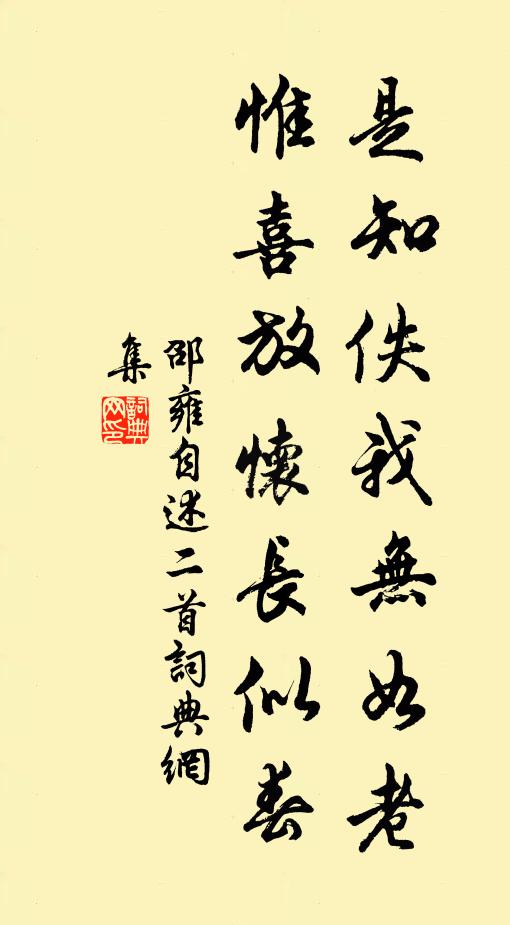 是知佚我無如老
惟喜放懷長似春
邵雍自述二首詞典網
集
詞典網印